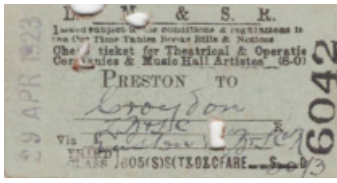 L. M. & S. R.
Issued subject to the conditions & regulations in
the Co's Time Tables Books Bills & Notices
Cheap ticket for Theatrical & Operatic
Companies & Music Hall Artistes (S-O)
PRESTON TO
Croydon
Via Euston
THIRD
CLASS 605(S)S(T&O&C FARE S D
29 APR 1923
6042